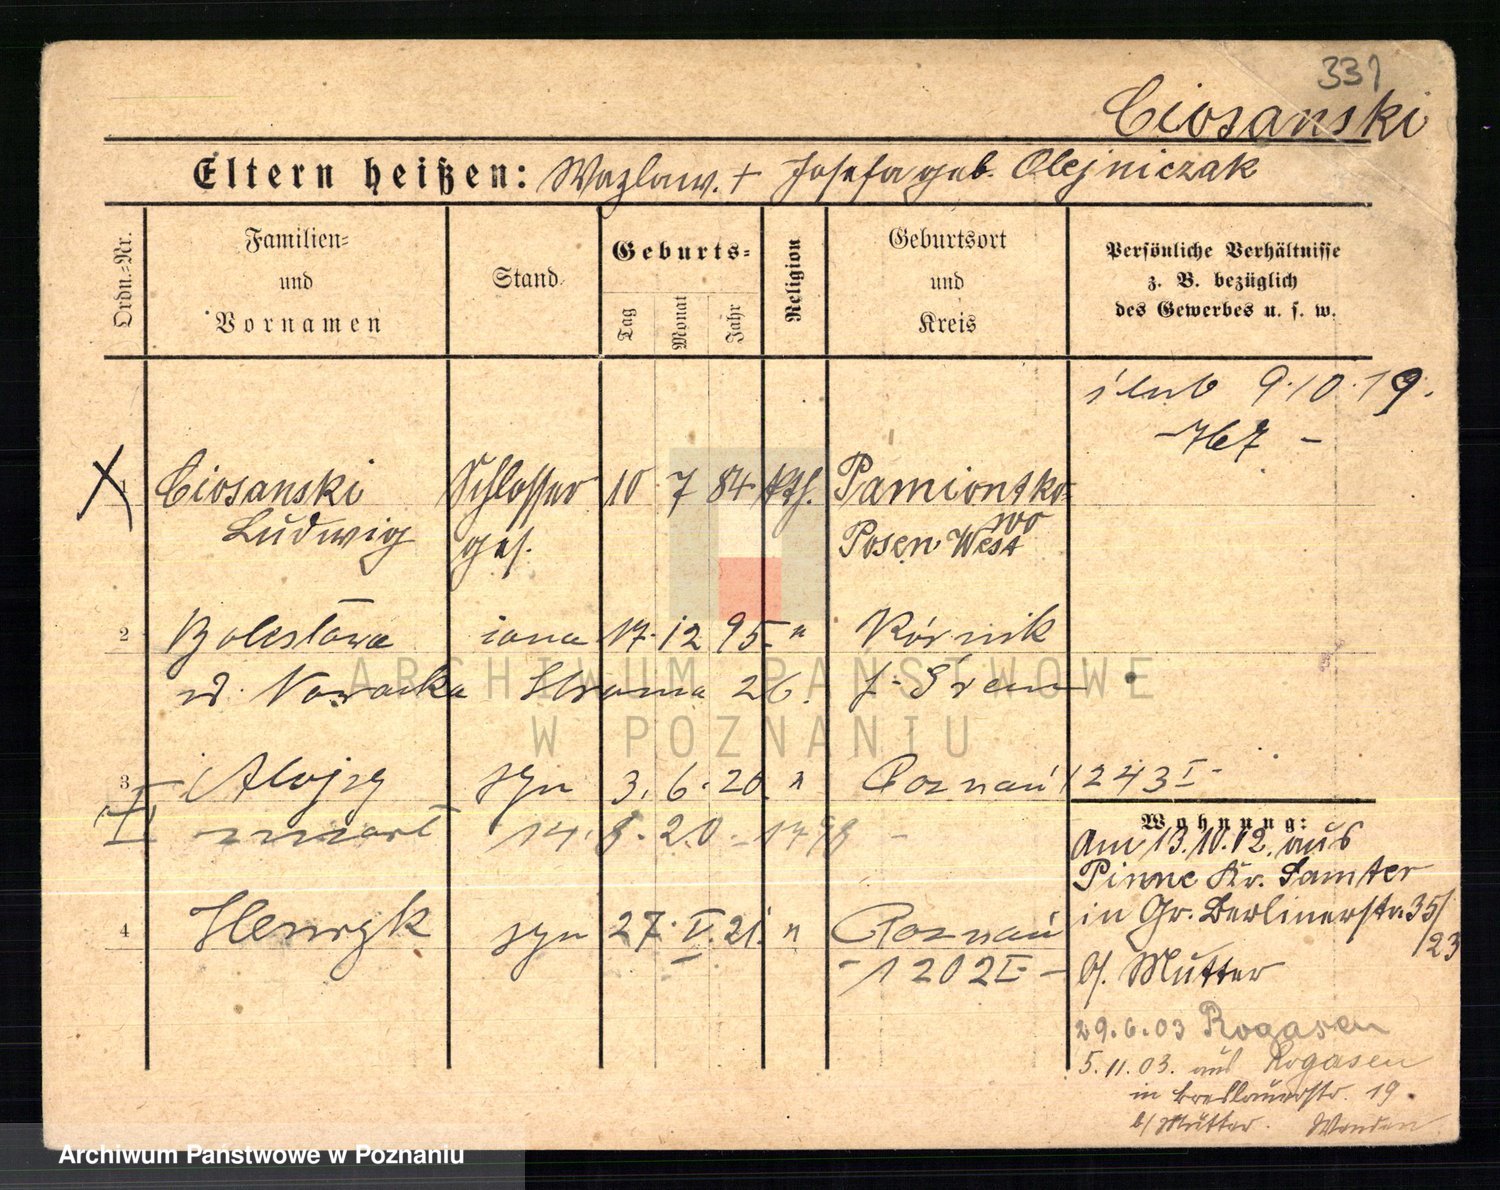 331
Ciosanski
Eltern heißen: Wazlaw. + Josefa geb. Olejniczak
Ordn.=Nr.
Familien= und Vornamen
Stand
Geburts=
Tag
Monat
Jahr
Religion
Geburtsort und Kreis
Persönliche Verhältnisse
z. B. bezüglich
des Gewerbes u. s. w.
ślub 9.10.19.
- 767 -
1 Ciosanski Schlosser 10 7 84 kth. Pamiontko
Ludwig ges. wo
Posen West
2 Bolesława żona 17. 12 95. " Kórnik
z d. Nowacka Stroma 26. Śrem
3 Alojzy syn 3. 6. 20. " Poznań 1243 I -
zmarł 14. 8. 20 - 1478 -
4 Henryk syn 27. V. 21. " Poznań
- 1202 I -
Wohnung:
Am 13.10.12. aus
Pinne Kr. Samter
in Gr. Berlinerstr. 35/
23
b/. Mutter
29.6.03 Rogasen
5.11.03. aus Rogasen
in Breslauerstr. 19.
b/ Mutter.
ARCHIWUM PAŃSTWOWE
W POZNANIU
Archiwum Państwowe w Poznaniu